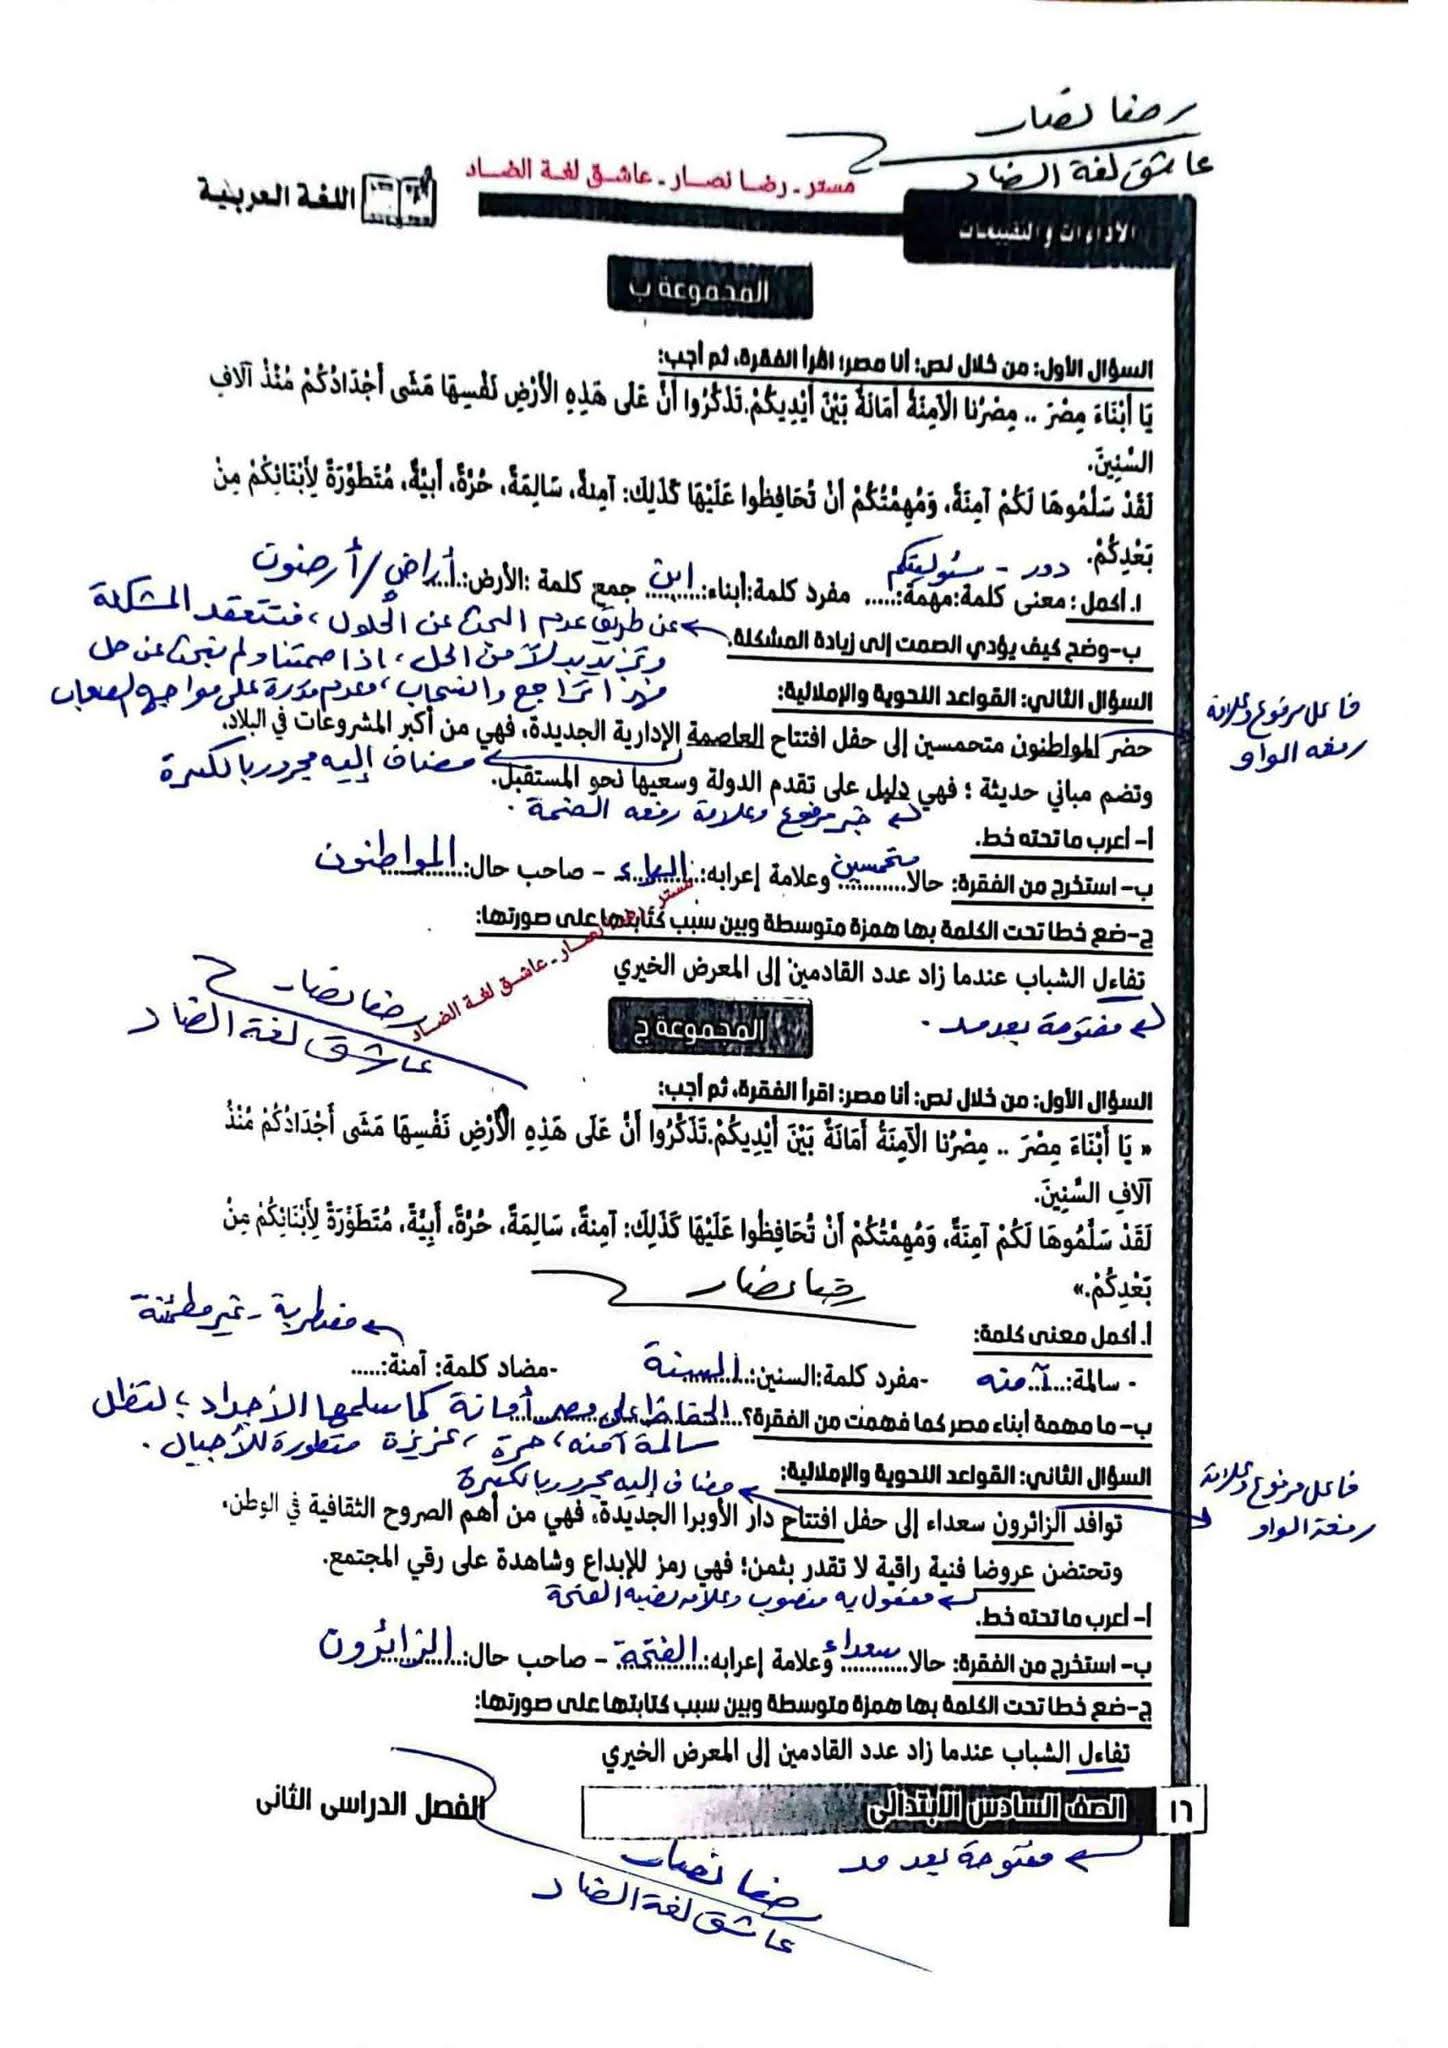 رضا نصار
عاشق لغة الضاد
مستر - رضا نصار - عاشق لغة الضاد
اللغة العربية
الأداءات والتقييمات
المجموعة ب
السؤال الأول: من خلال نص: أنا مصر؛ اقرأ الفقرة، ثم أجب:
يَا أَبْنَاءَ مِصْرَ .. مِصْرُنا الْآمِنَةُ أَمَانَةٌ بَيْنَ أَيْدِيكُمْ.تَذَكَّرُوا أَنَّ عَلَى هَذِهِ الْأَرْضِ نَفْسِهَا مَشَى أَجْدَادُكُمْ مُنْذُ آلَافِ
السِّنِينَ.
لَقَدْ سَلَّمُوهَا لَكُمْ آمِنَةً، وَمُهِمَّتُكُمْ أَنْ تُحَافِظُوا عَلَيْهَا كَذَلِكَ: آمِنةً، سَالِمَةً، حُرَّةً، أَبِيَّةً، مُتَطَوِّرَةً لِأَبْنَائِكُمْ مِنْ
بَعْدِكُمْ.
دور - مسئوليتكم
ابن
أراضٍ / أرضون
١. أكمل : معنى كلمة:مهمة:..... مفرد كلمة:أبناء:........ جمع كلمة :الأرض:......
ب–وضح كيف يؤدي الصمت إلى زيادة المشكلة.
عن طريق عدم البحث عن الحلول ، فتتعقد المشكلة
وتزيد بدلاً من الحل ، اذا صمتنا ولم نبحث عن حل
السؤال الثاني: القواعد النحوية والإملائية:
حضر المواطنون متحمسين إلى حفل افتتاح العاصمة الإدارية الجديدة، فهي من أكبر المشروعات في البلاد.
فاعل مرفوع وعلامة
رفعه الواو
مضاف إليه مجرور بالكسرة
وتضم مباني حديثة ؛ فهي دليل على تقدم الدولة وسعيها نحو المستقبل.
خبر مرفوع وعلامة رفعه الضمة .
أ– أعرب ما تحته خط.
ب– استخرج من الفقرة: حالا........... وعلامة إعرابه:.......... – صاحب حال:............
متحمسين
الياء
المواطنون
ج–ضع خطا تحت الكلمة بها همزة متوسطة وبين سبب كتابتها على صورتها:
تفاءل الشباب عندما زاد عدد القادمين إلى المعرض الخيري
مستر - رضا نصار - عاشق لغة الضاد
مفتوحة بعد مد .
رضا نصار
عاشق لغة الضاد
المجموعة ج
السؤال الأول: من خلال نص: أنا مصر: اقرأ الفقرة، ثم أجب:
« يَا أَبْنَاءَ مِصْرَ .. مِصْرُنا الْآمِنَةُ أَمَانَةٌ بَيْنَ أَيْدِيكُمْ.تَذَكَّرُوا أَنَّ عَلَى هَذِهِ الْأَرْضِ نَفْسِهَا مَشَى أَجْدَادُكُمْ مُنْذُ
آلَافِ السِّنِينَ.
لَقَدْ سَلَّمُوهَا لَكُمْ آمِنَةً، وَمُهِمَّتُكُمْ أَنْ تُحَافِظُوا عَلَيْهَا كَذَلِكَ: آمِنةً، سَالِمَةً، حُرَّةً، أَبِيَّةً، مُتَطَوِّرَةً لِأَبْنَائِكُمْ مِنْ
بَعْدِكُمْ.»
رضا نصار
أ. أكمل معنى كلمة:
مضطربة - غير مطمئنة
- سالمة:..آمنه -مفرد كلمة:السنين:..السنة.. -مضاد كلمة: آمنة:.....
ب– ما مهمة أبناء مصر كما فهمت من الفقرة؟
الحفاظ على مصر أمانة كما سلمها الأجداد ؛ لتظل
سالمة آمنه ، حرة ، عزيزة متطورة للأجيال .
السؤال الثاني: القواعد النحوية والإملائية:
مضاف إليه مجرور بالكسرة
توافد الزائرون سعداء إلى حفل افتتاح دار الأوبرا الجديدة، فهي من أهم الصروح الثقافية في الوطن.
فاعل مرفوع وعلامة
رفعة الواو
وتحتضن عروضا فنية راقية لا تقدر بثمن؛ فهي رمز للإبداع وشاهدة على رقي المجتمع.
مفعول به منصوب وعلامه نصبه الفتحة
أ– أعرب ما تحته خط.
ب– استخرج من الفقرة: حالا........... وعلامة إعرابه:.......... – صاحب حال:............
سعداء
الفتحة
الزائرون
ج–ضع خطا تحت الكلمة بها همزة متوسطة وبين سبب كتابتها على صورتها:
تفاءل الشباب عندما زاد عدد القادمين إلى المعرض الخيري
١٦
الصف السادس الابتدائى
الفصل الدراسى الثانى
مفتوحة بعد مد
رضا نصار
عاشق لغة الضاد